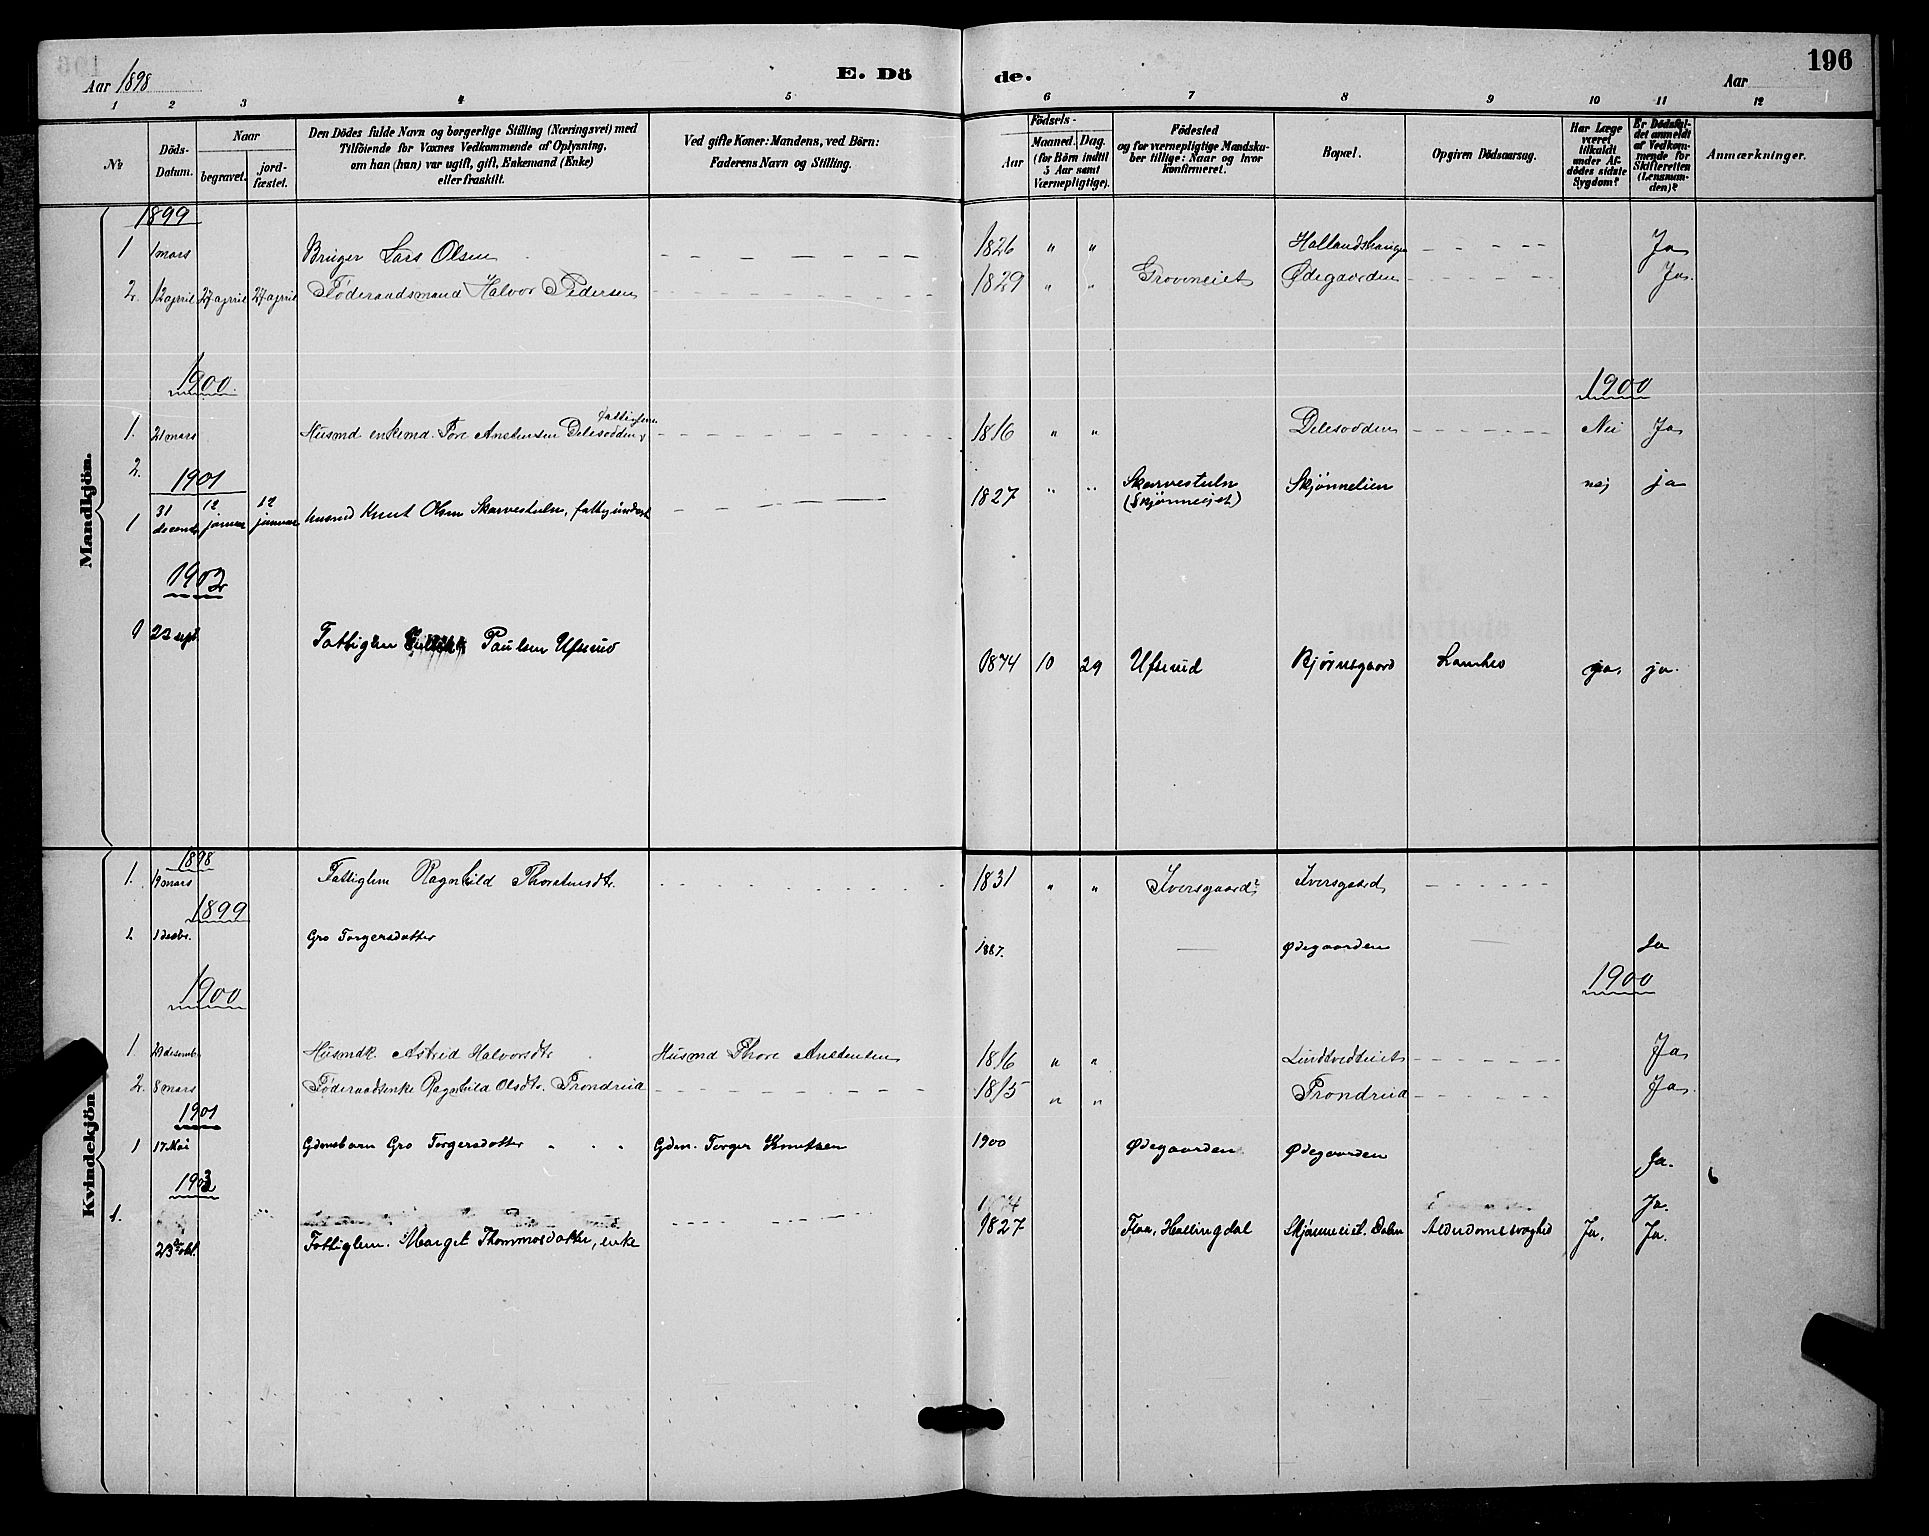 Aar 1898
E. Dö
de.
Aar
196
1 2 3 4 5 6 7 8 9 10 11 12
№
Döds-Datum.
Naar
begravet.
jord-fæstet.
Den Dödes fulde Navn og borgerlige Stilling (Næringsvei) med
Tilföiende for Voxnes Vedkommende af Oplysning,
om han (hun) var ugift, gift, Enkemand (Enke)
eller fraskilt.
Ved gifte Koner: Mandens, ved Börn:
Faderens Navn og Stilling.
Födsels-
Aar
Maaned. Dag.
(for Börn indtil
5 Aar samt
Værnepligtige).
Födested
og for værnepligtige Mandska-
ber tillige: Naar og hvor
konfirmeret.
Bopæl.
Opgiven Dödsaarsag.
Har Læge
været
tilkaldt
under Af-
dödes sidste
Sygdom?
Er Dödsfal-
det anmeldt
af Vedkom-
mende for
Skifteretten
(Lensman-
den)?
Anmærkninger.
Mandkjön.
1899
1 1 mars Bruger Lars Olsen 1826 " " Ja
2. 12 april 27 april 27 april Föderaadsmand Halvor Pedersen 1829 " " Grovneiet Ødegaarden Ja.
1900. 1900
1. 21 mars Husmd enkemd. Tore Anstensen 1816 " " Nei Ja
2.
1901
1 31 decemb 12 januar 12 januar husmd Knut Olsen Skarvestuln, 1827 " " Skarvestuln (Skjönneiet) Skjönnelien nej ja
1902
1 23 sept. Fattiglem Paulsen Ufsrud 1874 10 29 Ufsrud Bjørnsgaard ja. ja.
Kvindekjön
1898
1. 19 mars Fattiglem Ragnhild Thorstensdtr. 1831 " " Iversgaard Iversgaard
1899
1 1 decbr. Gro Torgersdotter 1887. Ødegaarden Ja
1900 1900
1 29 desemb. Husmdk. Astrid Halvorsdtr Husmd Thore Anstensen 1816 " " Ja
2. 8 mars Föderaadsenke Ragnhild Olsdtr. Trondrud 1815 " " Trondrud Ja.
1901
1 17 Mai Gdmsbarn Gro Torgersdotter " " " Gdm. Torger Knutsen 1900 Ødegaarden Ødegaarden Ja.
1903
1. Ja.
23 okt. Fattiglem. Marget Thommasdotter, enke 1827 Flaa, Hallingdal Skjønneiet. Dalen Alderdomssvaghed Ja. Ja.